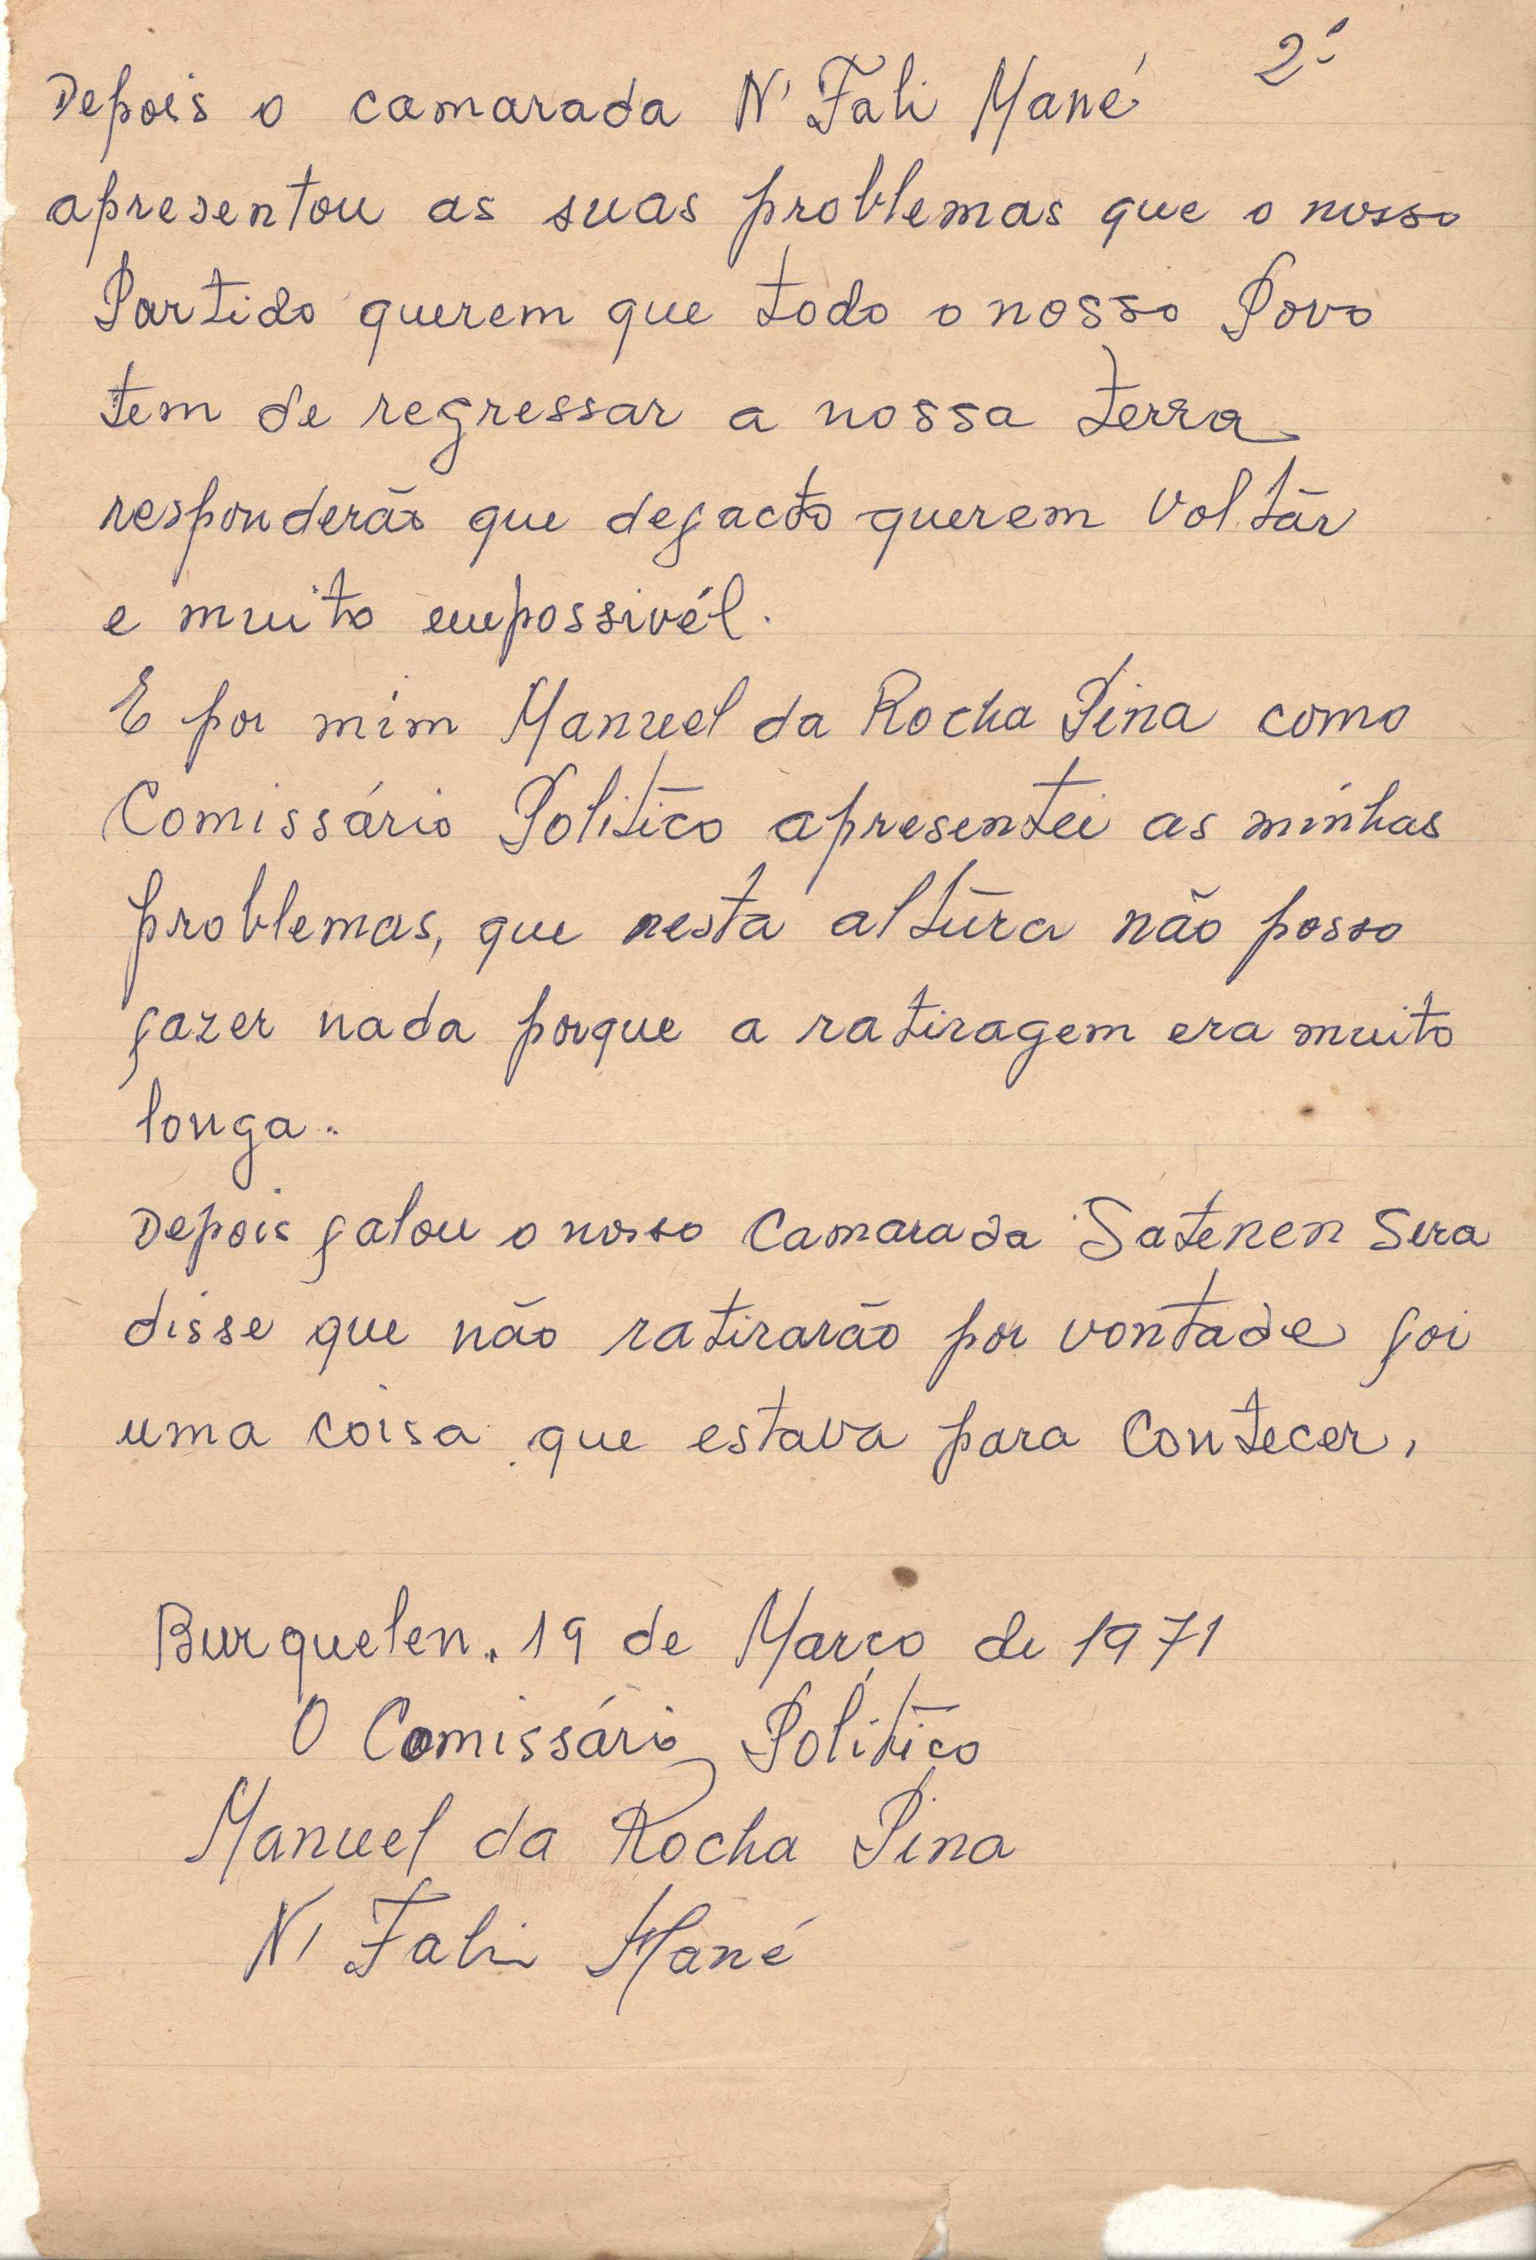 2º
Depois o camarada N'Fali Mané
apresentou as suas problemas que o nosso
Partido querem que todo o nosso Povo
tem de regressar a nossa terra
responderão que defacto querem voltár
e muito empossivél.
E por mim Manuel da Rocha Pina como
Comissário Politico apresentei as minhas
problemas, que nesta altura não posso
fazer nada porque a ratiragem era muito
longa.
Depois falou o nosso Camarada Satenen Sera
disse que não ratirarão por vontade foi
uma coisa que estava para Contecer,
Burquelen. 19 de Março de 1971
O Comissário Politico
Manuel da Rocha Pina
N'Fali Mané